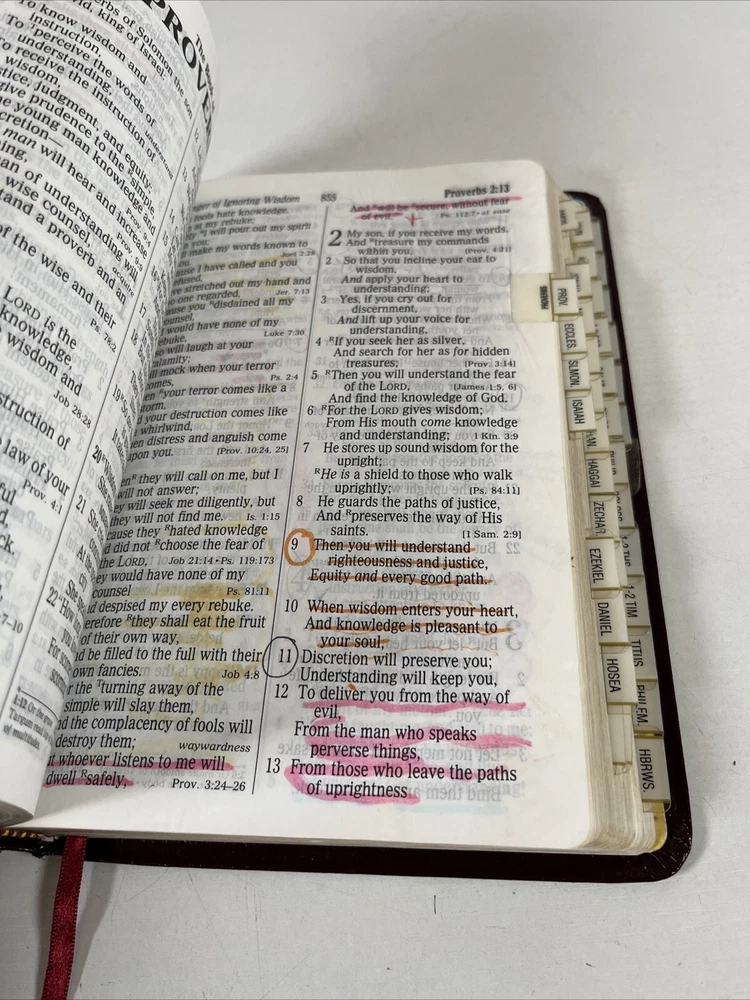 PROVE
To know wisdom and
instruction,
To perceive the words of
understanding,
To receive the instruction of
wisdom,
justice, judgment, and equity;
give prudence to the simple,
the young man knowledge and
discretion—
man will hear and increase
man of understanding will
wise counsel,
understand a proverb and an
of the wise and their
Ps. 78:2
LORD is the
knowledge
wisdom and
Job 28:28
instruction of
law of your
Prov. 4:1
of Ignoring Wisdom 855 Proverbs 2:13
fools hate knowledge.
at my rebuke;
I will pour out my spirit
you;
make my words known to
Joel 2:28
I have called and you
refused,
stretched out my hand and
no one regarded, Jer. 7:13
you disdained all my
counsel,
would have none of my
rebuke, Luke 7:30
will laugh at your
calamity;
mock when your terror
comes, Ps. 2:4
your terror comes like a
storm,
your destruction comes like
whirlwind,
when distress and anguish come
upon you. [Prov. 10:24, 25]
they will call on me, but I
will not answer;
they will seek me diligently, but
they will not find me. Is. 1:15
they hated knowledge
did not choose the fear of
the LORD, Job 21:14 • Ps. 119:173
They would have none of my
counsel Ps. 81:11
despised my every rebuke.
they shall eat the fruit
of their own way,
be filled to the full with their
own fancies. Job 4:8
the turning away of the
simple will slay them,
the complacency of fools will
destroy them; waywardness
whoever listens to me will
dwell Rsafely, Prov. 3:24–26
And will be secure, without fear
of evil." Ps. 112:7 • at ease
2 My son, if you receive my words,
And Rtreasure my commands
within you, [Prov. 4:21]
2 So that you incline your ear to
wisdom,
And apply your heart to
understanding;
3 Yes, if you cry out for
discernment,
And lift up your voice for
understanding,
4 RIf you seek her as silver,
And search for her as for hidden
treasures; [Prov. 3:14]
5 RThen you will understand the fear
of the LORD, [James 1:5, 6]
And find the knowledge of God.
6 RFor the LORD gives wisdom;
From His mouth come knowledge
and understanding; 1 Kin. 3:9
7 He stores up sound wisdom for the
upright;
RHe is a shield to those who walk
uprightly; [Ps. 84:11]
8 He guards the paths of justice,
And Rpreserves the way of His
saints. [1 Sam. 2:9]
9 Then you will understand
righteousness and justice,
Equity and every good path.
10 When wisdom enters your heart,
And knowledge is pleasant to
your soul,
11 Discretion will preserve you;
Understanding will keep you,
12 To deliver you from the way of
evil,
From the man who speaks
perverse things,
13 From those who leave the paths
of uprightness
PROV.
ECCLES
SLMON
ISAIAH
HAGGAI
ZECHAR.
EZEKIEL
1-2 TIM
DANIEL
TITUS
HOSEA
PHILEM.
HBRWS.